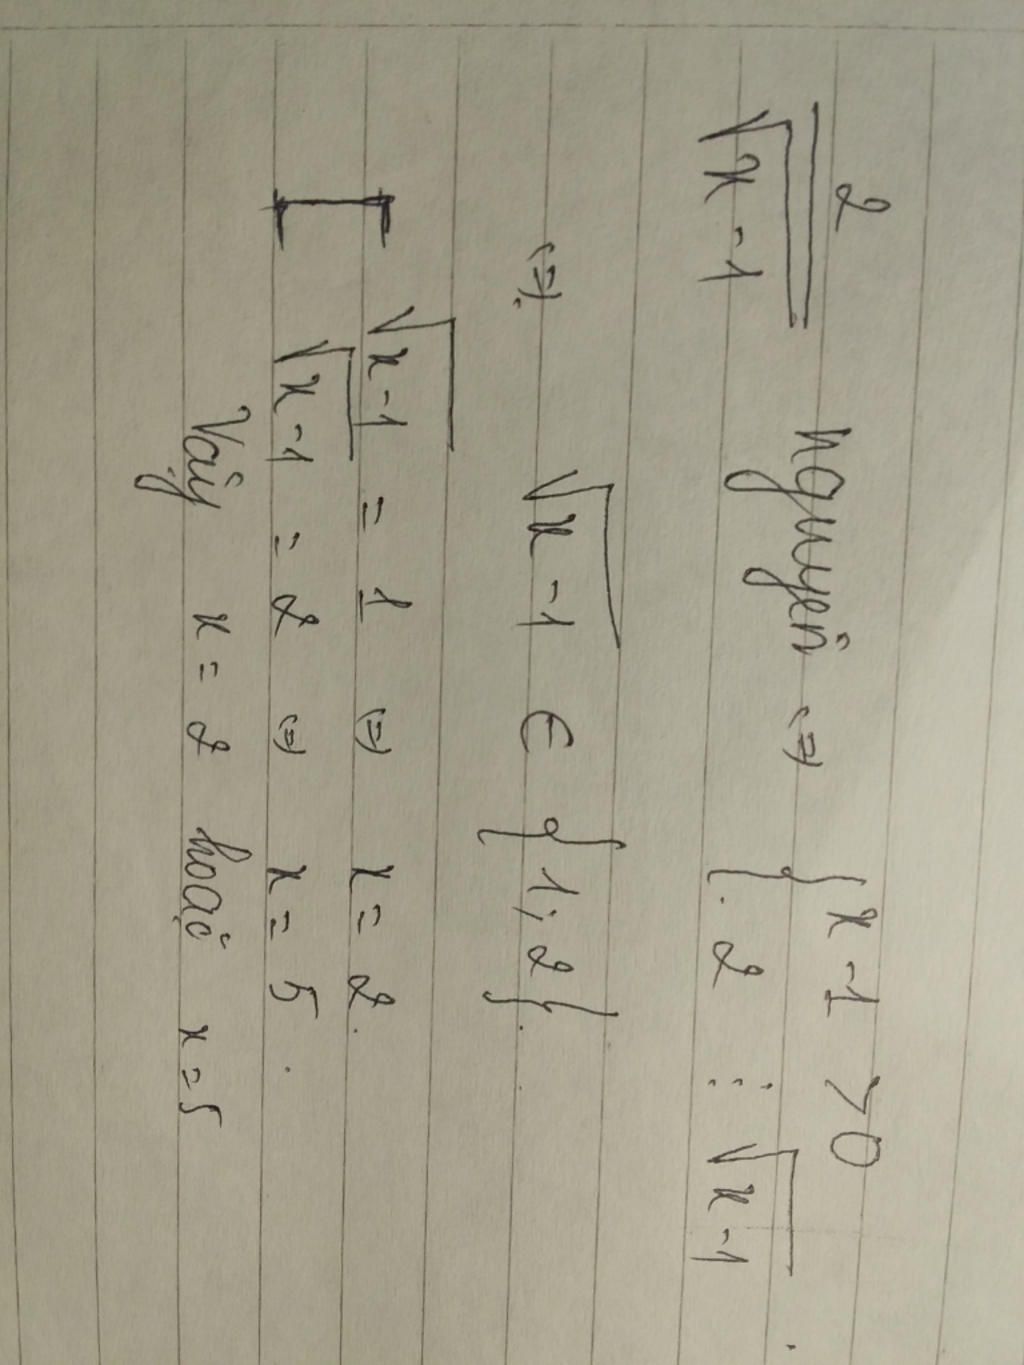 2/√(x-1) nguyên ⇔ { x-1 > 0
{ 2 ⋮ √(x-1).
⇔ √(x-1) ∈ {1; 2}.
[ √(x-1) = 1 ⇔ x = 2.
√(x-1) = 2 ⇔ x = 5.
Vậy x = 2 hoặc x = 5